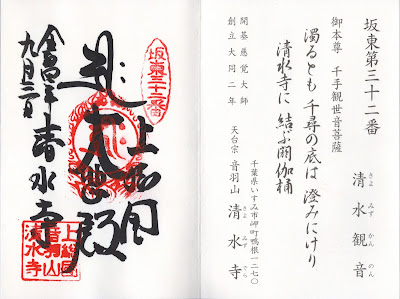 坂東第三十二番
きよ みず かん のん
清水観音
御本尊 千手観世音菩薩
濁るとも 千尋の底は 澄みにけり
清水寺に 結ぶ閼伽桶
開基慈覚大師
創立大同二年
千葉県いすみ市岬町鴨根一二七〇
きよ みず でら
天台宗 音羽山 清水寺
坂東三十二番
大悲殿
清水寺
上総国
音羽山
清水寺